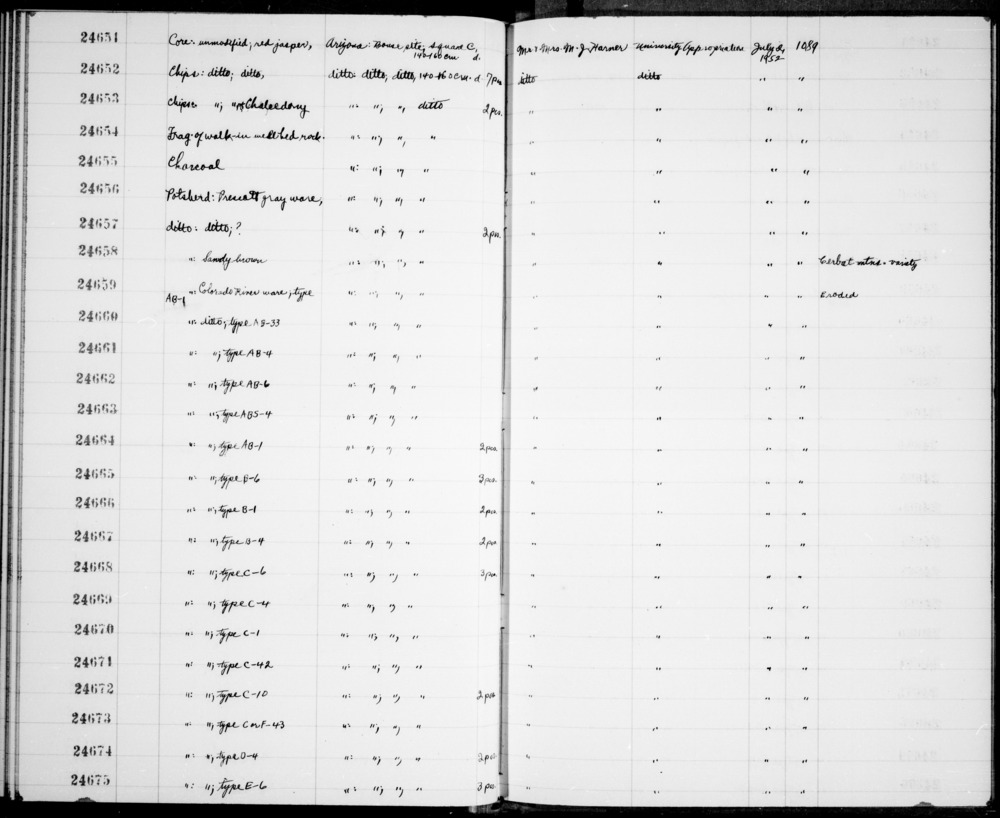 24651 Core: unmodified; red jasper, Arizona: Bouse site, square C, 140-160 cm d. Mr. & Mrs. M. J. Harner University Appropriation July 2, 1952 1089
24652 Chips: ditto; ditto, ditto: ditto; ditto, 140-160 cm. d 7 pcs. ditto ditto " "
24653 Chips: "; " Chalcedony ": "; ", ditto 2 pcs. " " " "
24654 Frag. of walk-in well bed rock. ": "; ", " " " " "
24655 Charcoal ": "; ", " " " " "
24656 Potsherd: Prescott gray ware, ": "; ", " " " " "
24657 ditto: ditto; ? ": "; ", " 2 pcs. " " " "
24658 ": Sandy brown ": "; ", " " " " " Cerbat mtns. variety
24659 ": Colorado River ware; type AB-1 ": "; ", " " " " " Eroded
24660 ": ditto; type AB-33 ": "; ", " " " " "
24661 ": "; type AB-4 ": "; ", " " " " "
24662 ": "; type AB-6 ": "; ", " " " " "
24663 ": "; type ABS-4 ": "; ", " " " " "
24664 ": "; type AB-1 ": "; ", " 2 pcs. " " " "
24665 ": "; type B-6 ": "; ", " 3 pcs. " " " "
24666 ": "; type B-1 ": "; ", " 2 pcs. " " " "
24667 ": "; type B-4 ": "; ", " 2 pcs. " " " "
24668 ": "; type C-6 ": "; ", " 3 pcs. " " " "
24669 ": "; type C-4 ": "; ", " " " " "
24670 ": "; type C-1 ": "; ", " " " " "
24671 ": "; type C-42 ": "; ", " " " " "
24672 ": "; type C-10 ": "; ", " 2 pcs. " " " "
24673 ": "; type C or F-43 ": "; ", " " " " "
24674 ": "; type D-4 ": "; ", " 2 pcs. " " " "
24675 ": "; type E-6 ": "; ", " 3 pcs. " " " "